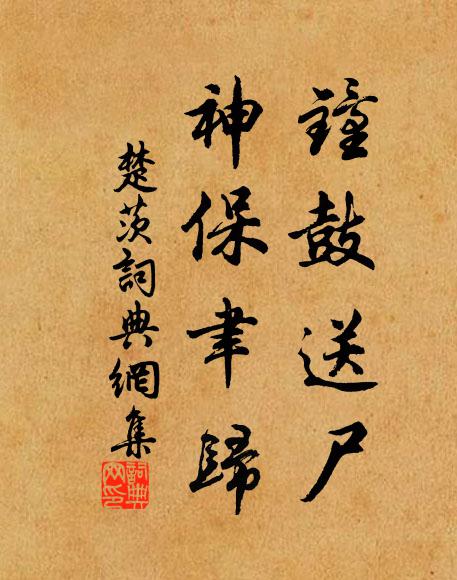 鐘鼓送尸
神保聿歸
楚茨詞典網集
詞典
网印